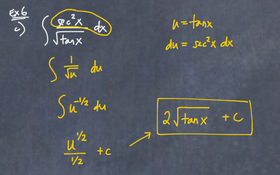 Ex 6
c) ∫ sec²x / √tanx dx
u = tanx
du = sec²x dx
∫ 1/√u du
∫ u^(-1/2) du
u^(1/2) / (1/2) + c
2√tanx + c